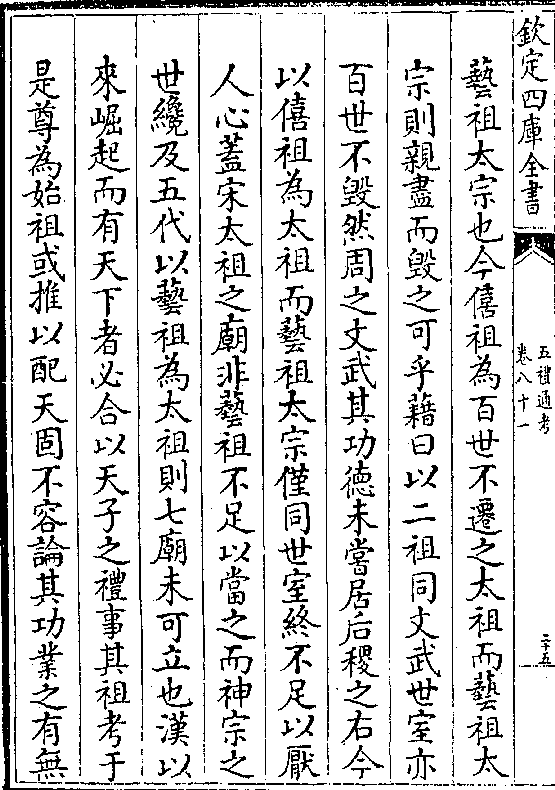 欽定四庫全書
五禮通考
卷八十一
二十五
藝祖太宗也今僖祖為百世不遷之太祖而藝祖太
宗則親盡而毀之可乎藉曰以二祖同文武世室亦
百世不毀然周之文武其功德未嘗居后稷之右今
以僖祖為太祖而藝祖太宗僅同世室終不足以厭
人心蓋宋太祖之廟非藝祖不足以當之而神宗之
世纔及五代以藝祖為太祖則七廟未可立也漢以
來崛起而有天下者必合以天子之禮事其祖考于
是尊為始祖或推以配天固不容論其功業之有無